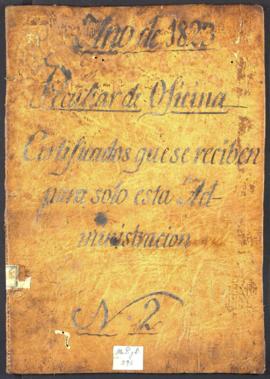 Año de 1823
Peculiar de Oficina
Certificados que se reciben
para solo esta Ad-
ministracion
N. 2